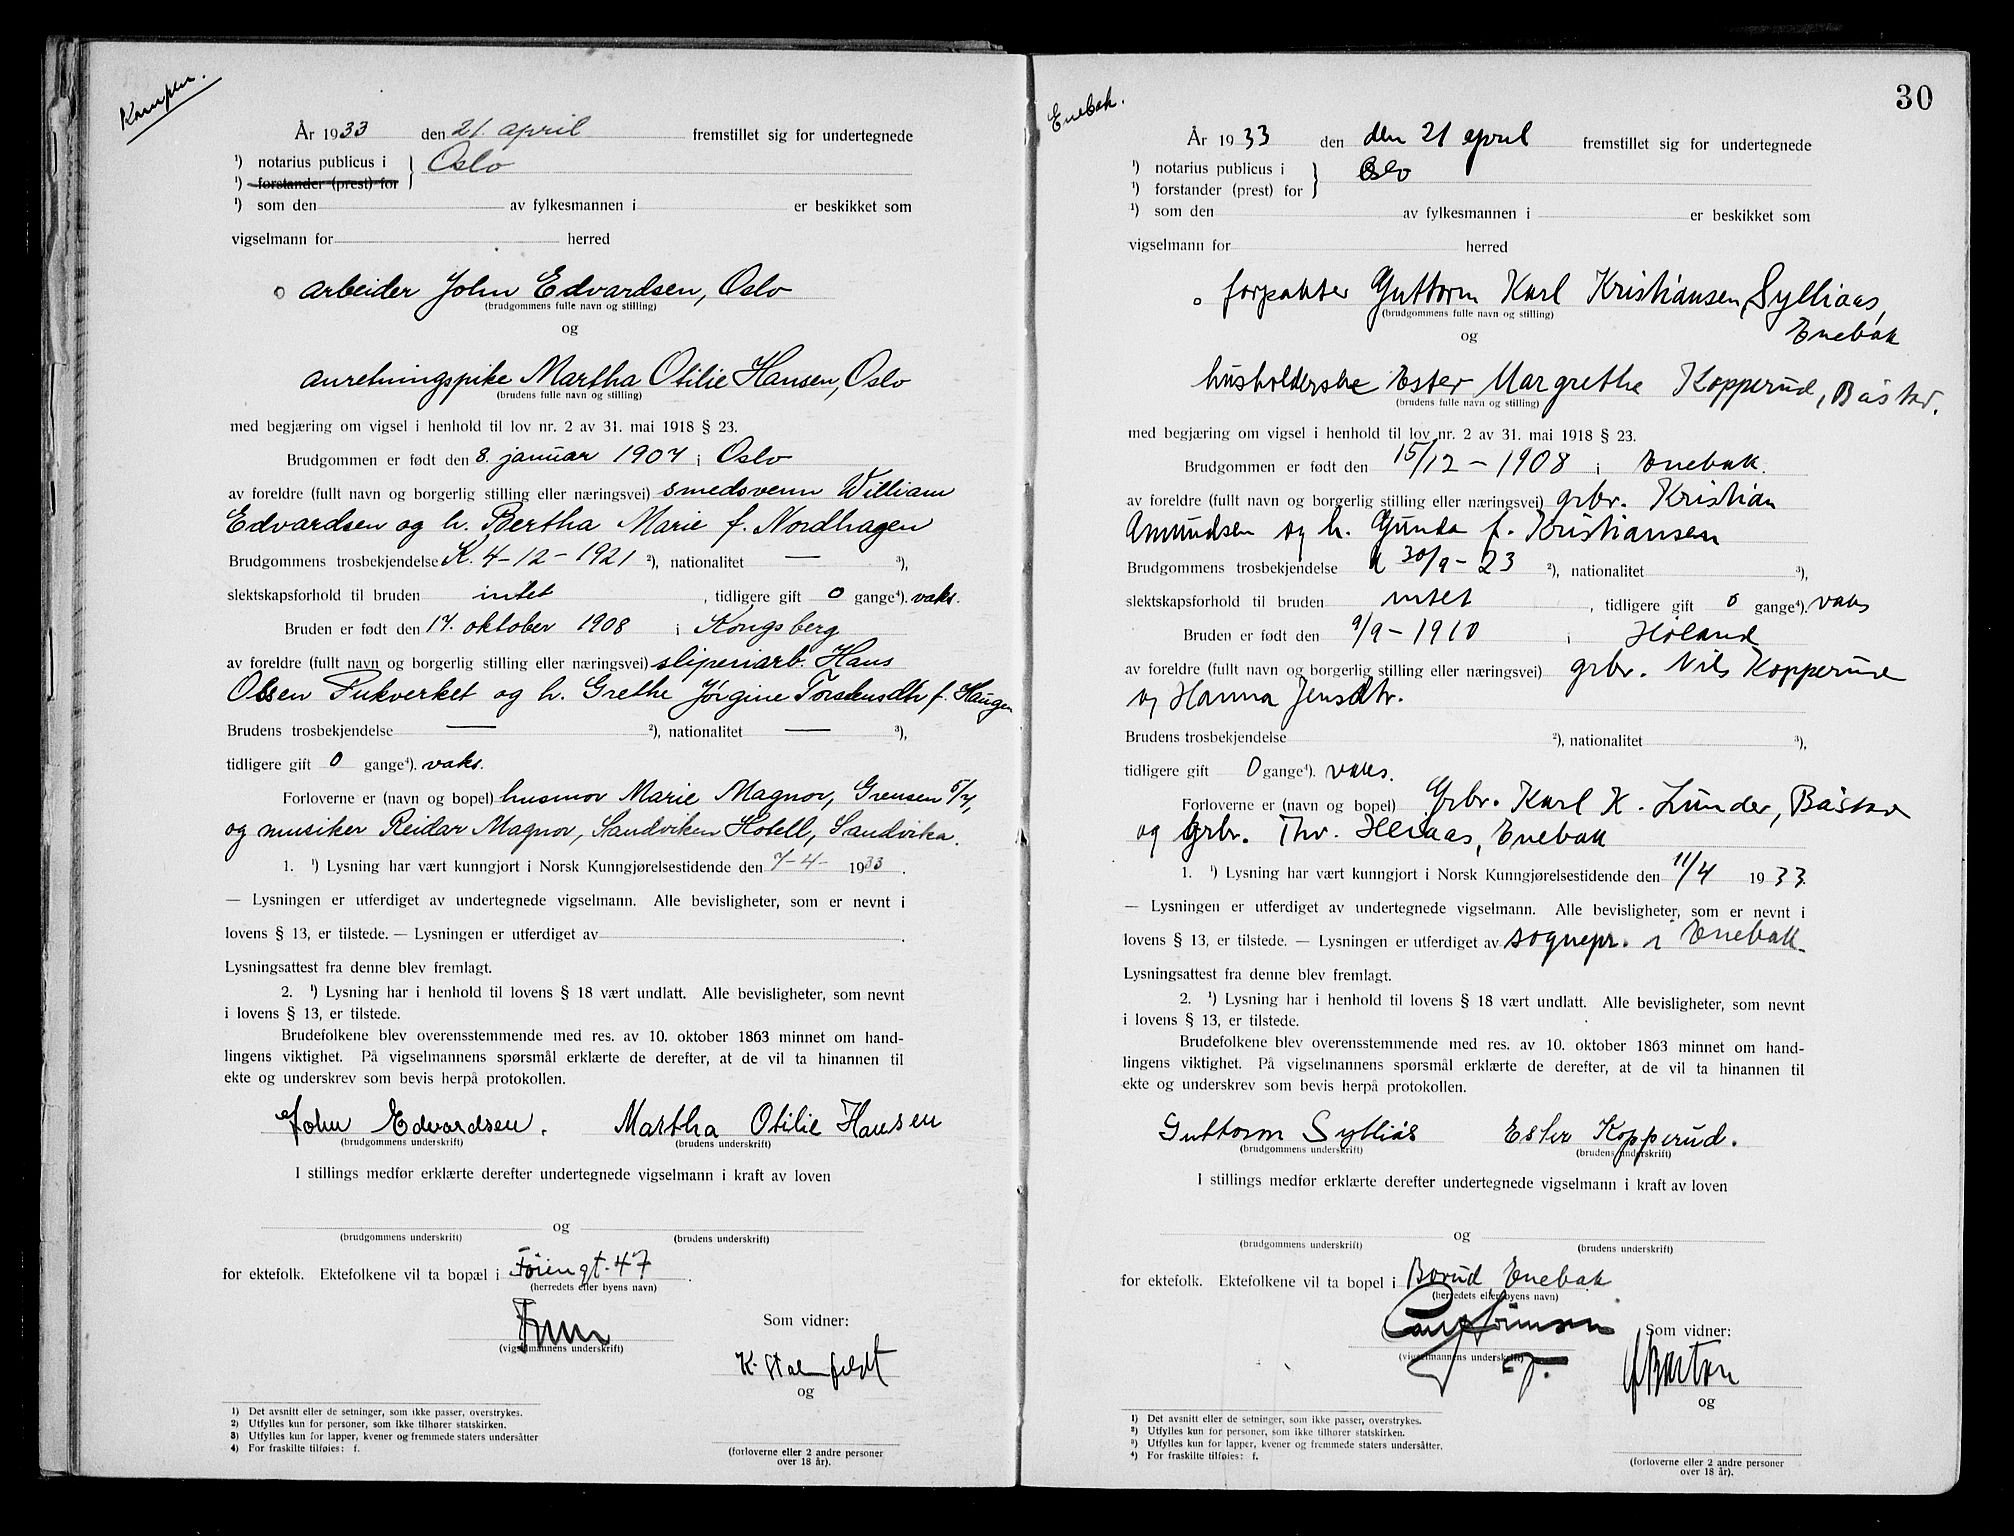 Kampen.
År 1933 den 21. april fremstillet sig for undertegnede
¹) notarius publicus i } Oslo
¹) forstander (prest) for
¹) som den av fylkesmannen i er beskikket som
vigselmann for herred
arbeider John Edvardsen, Oslo
(brudgommens fulle navn og stilling)
og
anretningspike Martha Otilie Hansen, Oslo
(brudens fulle navn og stilling)
med begjæring om vigsel i henhold til lov nr. 2 av 31. mai 1918 § 23.
Brudgommen er født den 8. januar 1907 i Oslo
av foreldre (fullt navn og borgerlig stilling eller næringsvei) smedsvenn William
Edvardsen og h. Bertha Marie f. Nordhagen
Brudgommens trosbekjendelse K. 4-12-1921 ²), nationalitet — ³),
slektskapsforhold til bruden intet , tidligere gift 0 gange⁴). vaks.
Bruden er født den 17. oktober 1908 i Kongsberg
av foreldre (fullt navn og borgerlig stilling eller næringsvei) sliperiarb. Hans
Olsen Fukverket og h. Grethe Jørgine Torstensdtr f. Haugen
Brudens trosbekjendelse — ²), nationalitet — ³),
tidligere gift 0 gange⁴). vaks.
Forloverne er (navn og bopel) husmor Marie Magnor, Grensen 5/7,
og musiker Reidar Magnor, Sandviken Hotell, Sandvika.
1. ¹) Lysning har vært kunngjort i Norsk Kunngjørelsestidende den 7-4- 1933.
— Lysningen er utferdiget av undertegnede vigselmann. Alle bevisligheter, som er nevnt i
lovens § 13, er tilstede. — Lysningen er utferdiget av .
Lysningsattest fra denne blev fremlagt.
2. ¹) Lysning har i henhold til lovens § 18 vært undlatt. Alle bevisligheter, som nevnt
i lovens § 13, er tilstede.
Brudefolkene blev overensstemmende med res. av 10. oktober 1863 minnet om hand-
lingens viktighet. På vigselmannens spørsmål erklærte de derefter, at de vil ta hinannen til
ekte og underskrev som bevis herpå protokollen.
John Edvardsen. Martha Otilie Hansen
(brudgommens underskrift) (brudens underskrift)
I stillings medfør erklærte derefter undertegnede vigselmann i kraft av loven
og
(brudgommens underskrift) (brudens underskrift)
for ektefolk. Ektefolkene vil ta bopæl i Tøiengt. 47.
(herredets eller byens navn)
Som vidner:
(vigselmannens underskrift)
K. Stalenfeldt
og
1) Det avsnitt eller de setninger, som ikke passer, overstrykes.
2) Utfylles kun for personer, som ikke tilhører statskirken.
3) Utfylles kun for lapper, kvener og fremmede staters undersåtter
4) For fraskilte tilføies: f.
(forloverne eller 2 andre personer
over 18 år).
30
Enebak.
År 1933 den den 21 april fremstillet sig for undertegnede
¹) notarius publicus i } Oslo
¹) forstander (prest) for
¹) som den av fylkesmannen i er beskikket som
vigselmann for herred
forpakter Guttorm Karl Kristiansen Sylliaas,
(brudgommens fulle navn og stilling)
Enebak
og
husholderske Ester Margrethe Kopperud, Båstad.
(brudens fulle navn og stilling)
med begjæring om vigsel i henhold til lov nr. 2 av 31. mai 1918 § 23.
Brudgommen er født den 15/12-1908 i Enebak.
av foreldre (fullt navn og borgerlig stilling eller næringsvei) grbr. Kristian
Amundsen og h. Gunda f. Kristiansen
Brudgommens trosbekjendelse k 30/9-23 ²), nationalitet ³),
slektskapsforhold til bruden intet , tidligere gift 0 gange⁴). vaks
Bruden er født den 9/9-1910 i Høland
av foreldre (fullt navn og borgerlig stilling eller næringsvei) grbr. Nils Kopperud
og Hanna Jensdtr.
Brudens trosbekjendelse ²), nationalitet ³),
tidligere gift 0 gange⁴). vaks.
Forloverne er (navn og bopel) Grbr. Karl K. Lunder, Båstad
og grbr. Thv. Heiaas, Enebak
1. ¹) Lysning har vært kunngjort i Norsk Kunngjørelsestidende den 11/4 1933.
— Lysningen er utferdiget av undertegnede vigselmann. Alle bevisligheter, som er nevnt i
lovens § 13, er tilstede. — Lysningen er utferdiget av sognepr. i Enebak
Lysningsattest fra denne blev fremlagt.
2. ¹) Lysning har i henhold til lovens § 18 vært undlatt. Alle bevisligheter, som nevnt
i lovens § 13, er tilstede.
Brudefolkene blev overensstemmende med res. av 10. oktober 1863 minnet om hand-
lingens viktighet. På vigselmannens spørsmål erklærte de derefter, at de vil ta hinannen til
ekte og underskrev som bevis herpå protokollen.
Guttorm Sylliås Ester Kopperud.
(brudgommens underskrift) (brudens underskrift)
I stillings medfør erklærte derefter undertegnede vigselmann i kraft av loven
og
(brudgommens underskrift) (brudens underskrift)
for ektefolk. Ektefolkene vil ta bopel i Borud, Enebak
(herredets eller byens navn)
Som vidner:
(vigselmannens underskrift)
og
1) Det avsnitt eller de setninger, som ikke passer, overstrykes.
2) Utfylles kun for personer, som ikke tilhører statskirken.
3) Utfylles kun for lapper, kvener og fremmede staters undersåtter.
4) For fraskilte tilføies: f.
(forloverne eller 2 andre personer
over 18 år).